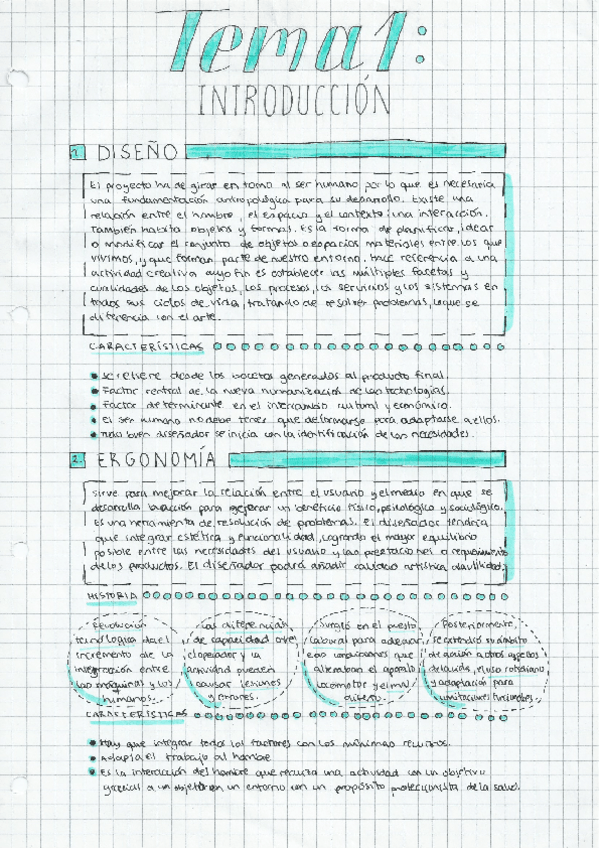 Tema 1:
INTRODUCCIÓN
1. DISEÑO
El proyecto ha de girar en torno al ser humano por lo que es necesaria
una fundamentación antropológica para su desarrollo. Existe una
relación entre el hombre, el espacio y el contexto: una interacción.
También habita objetos y formas. Es la forma de planificar, idear
o modificar el conjunto de objetos o espacios materiales entre los que
vivimos, y que forman parte de nuestro entorno. Hace referencia a una
actividad creativa cuyo fin es establecer las múltiples facetas y
cualidades de los objetos, los procesos, los servicios y los sistemas en
todos sus ciclos de vida, tratando de resolver problemas, lo que se
diferencia con el arte.
CARACTERÍSTICAS
Se refiere desde los bocetos generados al producto final.
Factor central de la nueva humanización de las tecnologías.
Factor determinante en el intercambio cultural y económico.
El ser humano no debe tener que deformarse para adaptarse a ellos.
Todo buen diseñador se inicia con la identificación de las necesidades.
2. ERGONOMÍA
Sirve para mejorar la relación entre el usuario y el medio en que se
desarrolla la acción para generar un beneficio físico, psicológico y sociológico.
Es una herramienta de resolución de problemas. El diseñador tendría
que integrar estética y funcionalidad, logrando el mayor equilibrio
posible entre las necesidades del usuario y las prestaciones o requerimientos
de los productos. El diseñador podrá añadir calidad artística al utilidad.
HISTORIA
Revolución
tecnológica dado el
incremento de la
integración entre
las máquinas y los
humanos.
Las diferencias
de capacidad entre
el operador y la
actividad pueden
causar lesiones
y errores.
Surgió en el puesto
laboral para adecuar
esas condiciones que
alteraban el aparato
locomotor y el mal
diseño.
Posteriormente,
se extendió su ámbito
de acción a otros aspectos
de la vida, el uso cotidiano
y adaptación para
limitaciones funcionales.
CARACTERÍSTICAS
Hay que integrar todos los factores con los mínimos recursos.
Adapta el trabajo al hombre
Es la interacción del hombre que realiza una actividad con un objetivo
gracias a un objeto en un entorno con un propósito proteccionista de la salud.